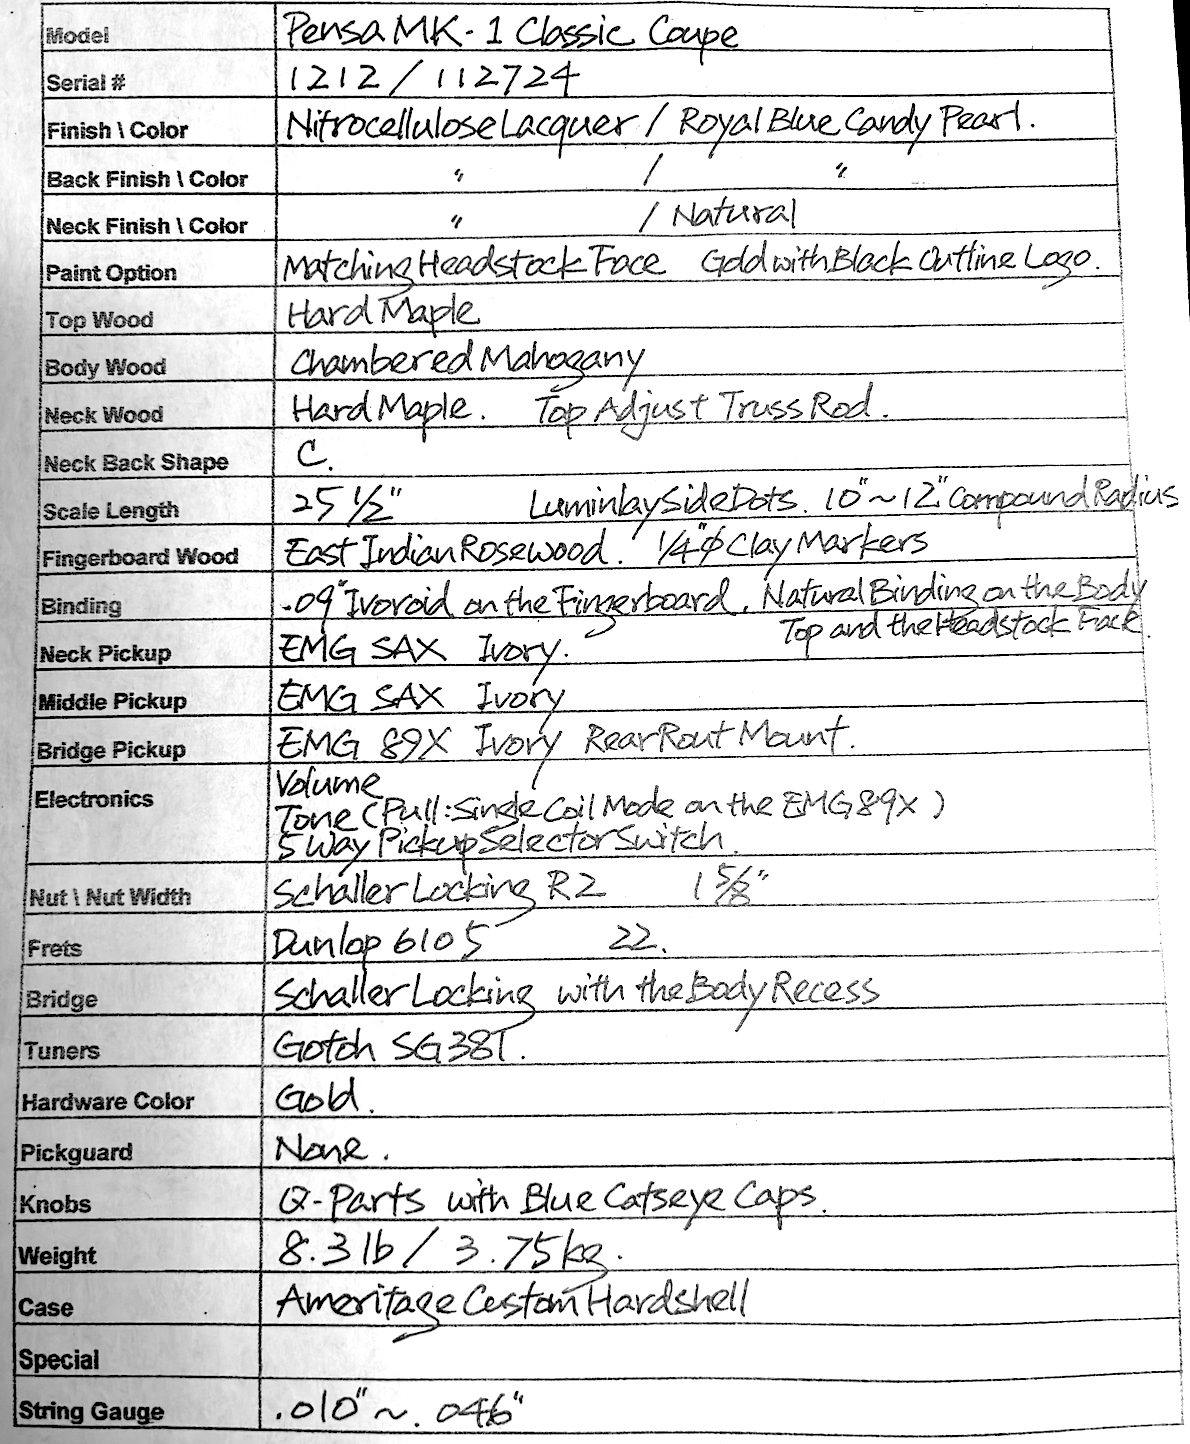 Model Pensa MK-1 Classic Coupe
Serial # 1212 / 112724
Finish \ Color Nitrocellulose Lacquer / Royal Blue Candy Pearl.
Back Finish \ Color " / "
Neck Finish \ Color " / Natural
Paint Option Matching Headstock Face Gold with Black Outline Logo.
Top Wood Hard Maple
Body Wood Chambered Mahogany
Neck Wood Hard Maple. Top Adjust Truss Rod.
Neck Back Shape C.
Scale Length 25 1/2" Luminlay Side Dots. 10"~12" Compound Radius
Fingerboard Wood East Indian Rosewood. 1/4"φ Clay Markers
Binding .09" Ivoroid on the Fingerboard. Natural Binding on the Body
Top and the Headstock Face.
Neck Pickup EMG SAX Ivory.
Middle Pickup EMG SAX Ivory
Bridge Pickup EMG 89X Ivory Rear Rout Mount.
Electronics Volume
Tone (Pull: Single Coil Mode on the EMG 89X)
5 Way Pickup Selector Switch.
Nut \ Nut Width Schaller Locking R2 1 5/8"
Frets Dunlop 6105 22.
Bridge Schaller Locking with the Body Recess
Tuners Gotoh SG38T.
Hardware Color Gold.
Pickguard None.
Knobs Q-Parts with Blue Catseye Caps.
Weight 8.3 lb / 3.75 kg.
Case Ameritage Custom Hardshell
Special
String Gauge .010" ~ .046"